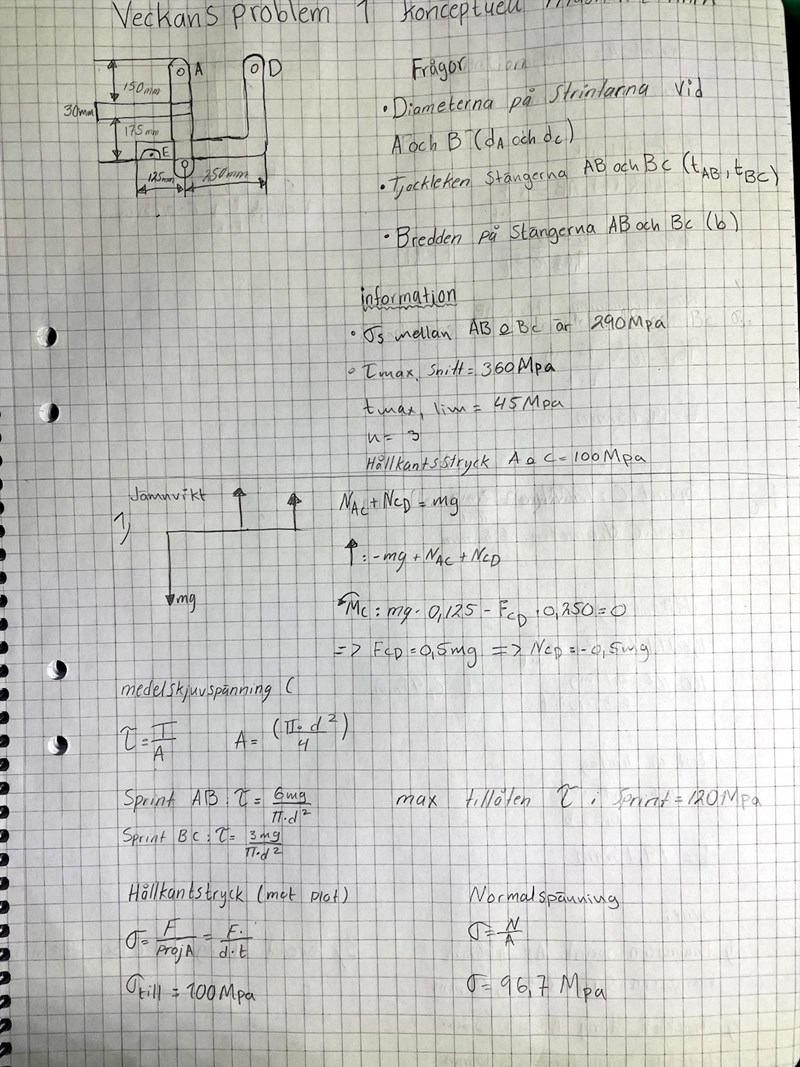 Veckans problem 1 konceptuell
A
D
Frågor
150mm
30mm
175mm
E
125mm
250mm
• Diameterna på Sprintarna vid
A och B (dA och dC)
• Tjockleken Stängerna AB och BC (tAB, tBC)
• Bredden på Stängerna AB och BC (b)
information
• σs mellan AB o BC är 290Mpa
• τmax, Snitt = 360Mpa
tmax, lim = 45Mpa
n = 3
Hållkantsstryck A o C = 100Mpa
Jämnvikt
1)
mg
NAC + NCD = mg
↑: -mg + NAC + NCD
MC: mg · 0,125 - FCD · 0,250 = 0
=> FCD = 0,5mg => NCD = -0,5mg
medelskjuvspänning C
τ = T/A A = (π·d²)/4
Sprint AB: τ = 6mg/π·d² max tillåten τ i Sprint = 120Mpa
Sprint BC: τ = 3mg/π·d²
Hållkantstryck (mot plåt) Normalspänning
σ = F/projA = F·/d·t σ = N/A
σtill = 100Mpa σ = 96,7 Mpa